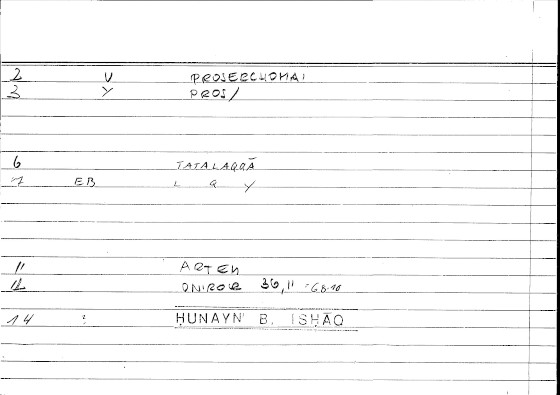 2 V PROSERCHOMAI
3 Y PROS/
6 TATALAQQĀ
7 EB L Q Y
11 ARTEM
12 ONIROCR 36,11
14 : ḤUNAYN B. ISḤĀQ